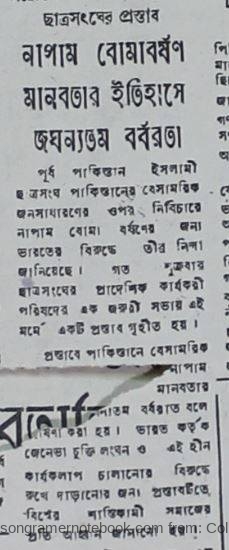 ছাত্রসংঘের প্রস্তাব
নাপাম বোমাবর্ষণ
মানবতার ইতিহাসে
জঘন্যতম বর্বরতা
পূর্ব পাকিস্তান ইসলামী
ছাত্রসংঘ পাকিস্তানের বেসামরিক
জনসাধারণের ওপর নির্বিচারে
নাপাম বোমা বর্ষণের জন্য
ভারতের বিরুদ্ধে তীব্র নিন্দা
জানিয়েছে। গত শুক্রবার
ছাত্রসংঘের প্রাদেশিক কার্যকরী
পরিষদের এক জরুরী সভায় এই
মর্মে একটি প্রস্তাব গৃহীত হয়।
প্রস্তাবে পাকিস্তানে বেসামরিক
নাপাম
মানবতার
বর্বরতা বলে
করা হয়। ভারত কর্তৃক
জেনেভা চুক্তি লংঘন ও এই হীন
কার্যকলাপ চালানোর বিরুদ্ধে
রুখে দাড়ানোর জন্য প্রস্তাবটিতে
বিশ্বের শান্তিকামী সমাজের
প্রতি আহ্বান জানানো হয়।
songramernotebook.com from: Col